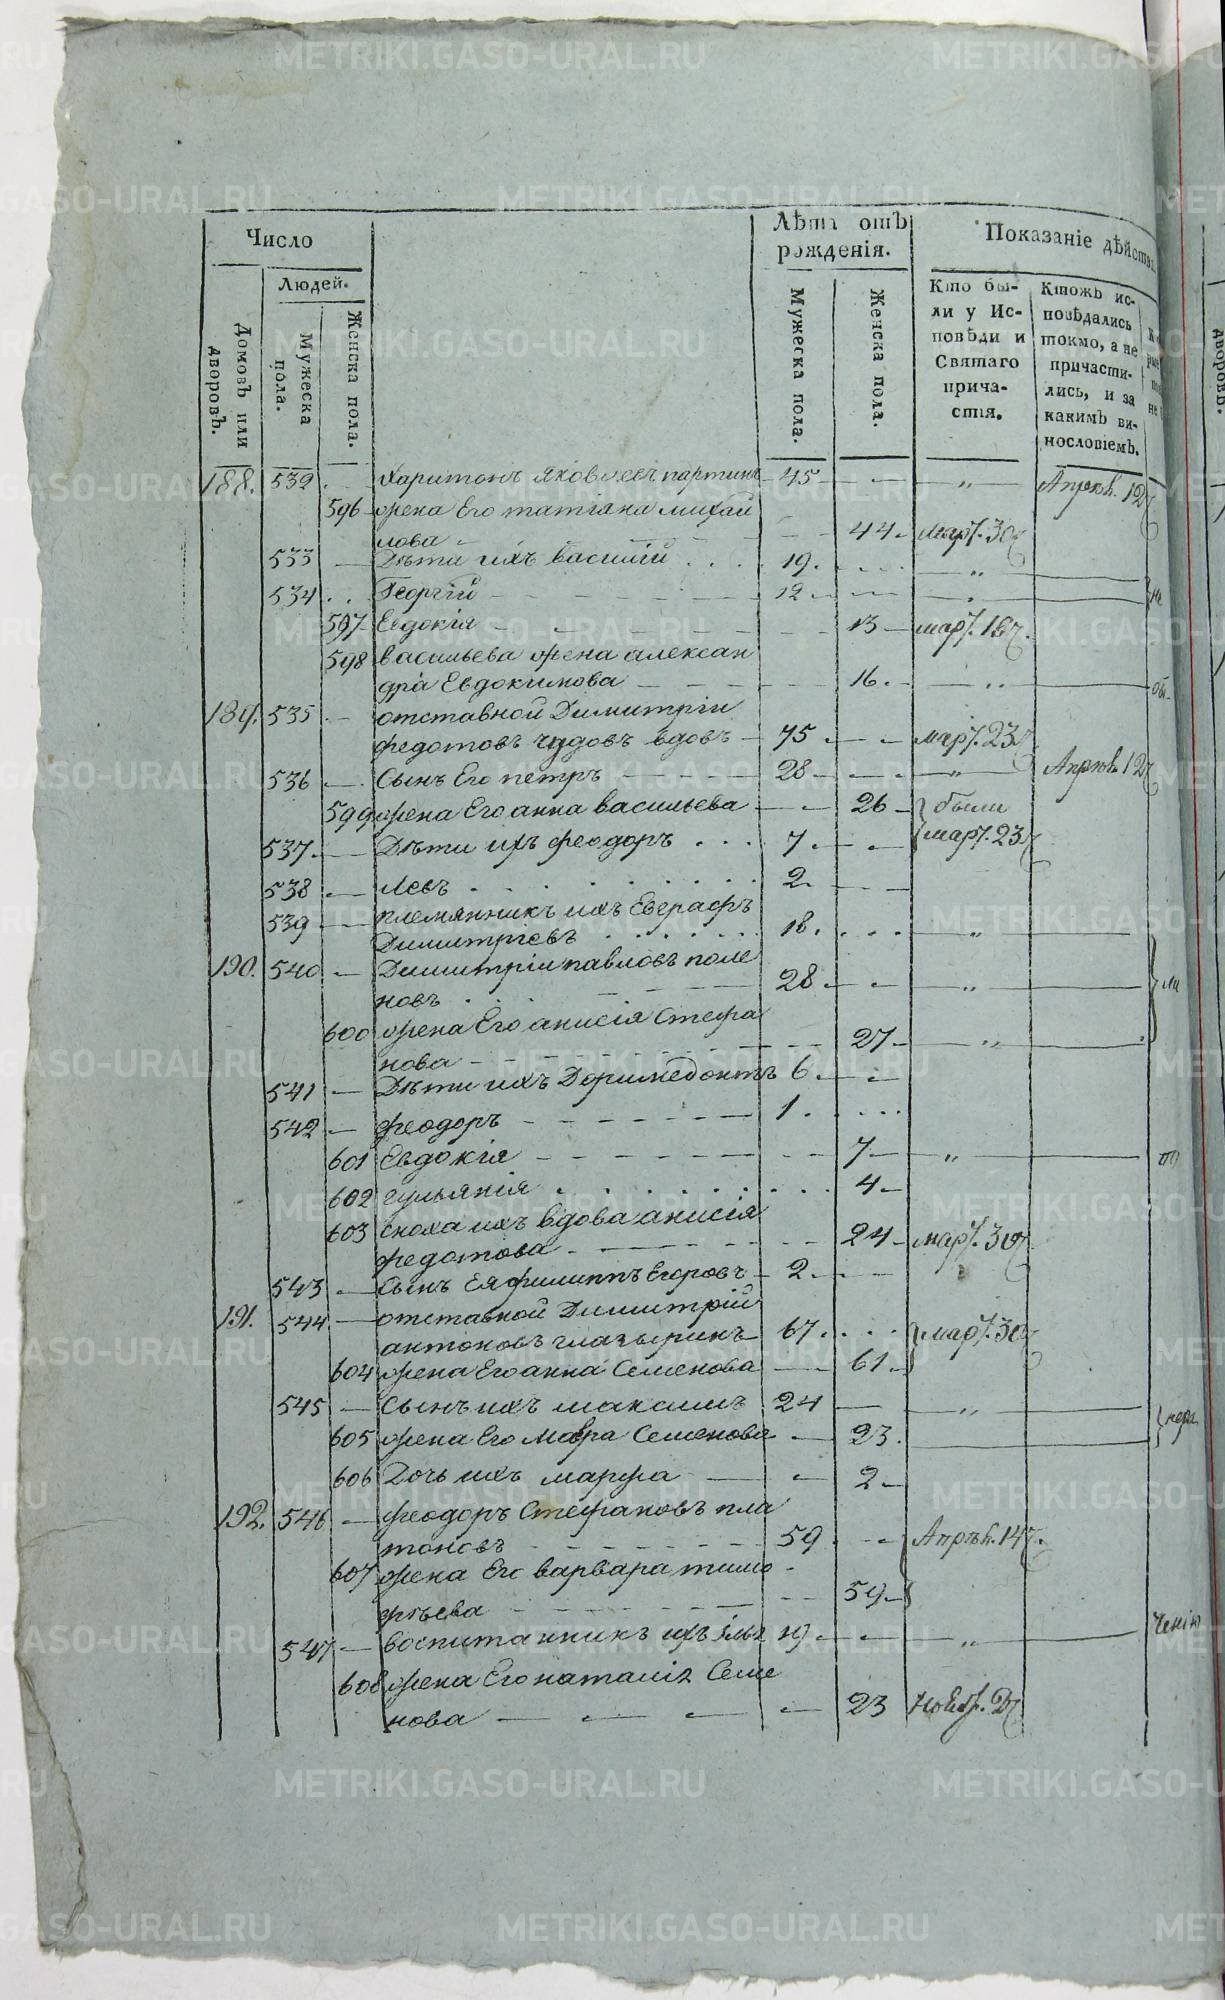 Число
Лѣта отъ рожденія.
Показаніе дѣйств
Людей.
Домовъ или дворовъ.
Мужеска пола.
Женска пола.
Мужеска пола.
Женска пола.
Кто бы-
ли у Ис-
повѣди и
Святаго
прича-
стія.
Ктожъ ис-
повѣдались
токмо, а не
причасти-
лись, и за
какимъ ви-
нословіемъ.
188. 532 Харитонъ Яковлевъ партинъ 45 — „ Апрѣл. 12
596 жена Его татіана михай
лова 44 мар. 30
533 Дѣти ихъ василій 19. „
534 Георгій 12 „
597 Евдокія 13 мар. 16
598 васильева жена алексан
дра Евдокимова 16. „
189. 535 отставной Димитрій
федотовъ чудовъ вдовъ 75 мар. 23
536 Сынъ Его петръ 28 „ Апрѣл. 12
599 жена Его анна васильева 26 были
537 Дѣти ихъ феодоръ 7 мар. 23
538 Левъ 2
539 племянникъ ихъ Евграфъ
Димитріевъ 18. „
190. 540 Димитріи павловъ поле
новъ 28 „
600 жена Его анисія Стефа
нова 27 „
541 Дѣти ихъ Доримедонтъ 6
542 феодоръ 1
601 Евдокія 7 „
602 іульянія 4
603 сноха ихъ вдова анисія
федотова 24 мар. 30
543 Сынъ Ея филиппъ Егоровъ 2
191. 544 отставной Димитрій
антоновъ глазыринъ 67 мар. 30
604 жена Его анна Семенова 61
545 Сынъ ихъ максимъ 24 „
605 жена Его Мавра Семенова 23.
606 Дочь ихъ марфа 2
192. 546 феодоръ Стефановъ пла
тоновъ 59 Апрѣл. 14
607 жена Его варвара тимо
фѣева 59
547 воспитанникъ ихъ 19 „
608 жена Его наталія Семе
нова 23 Ноябр. 2